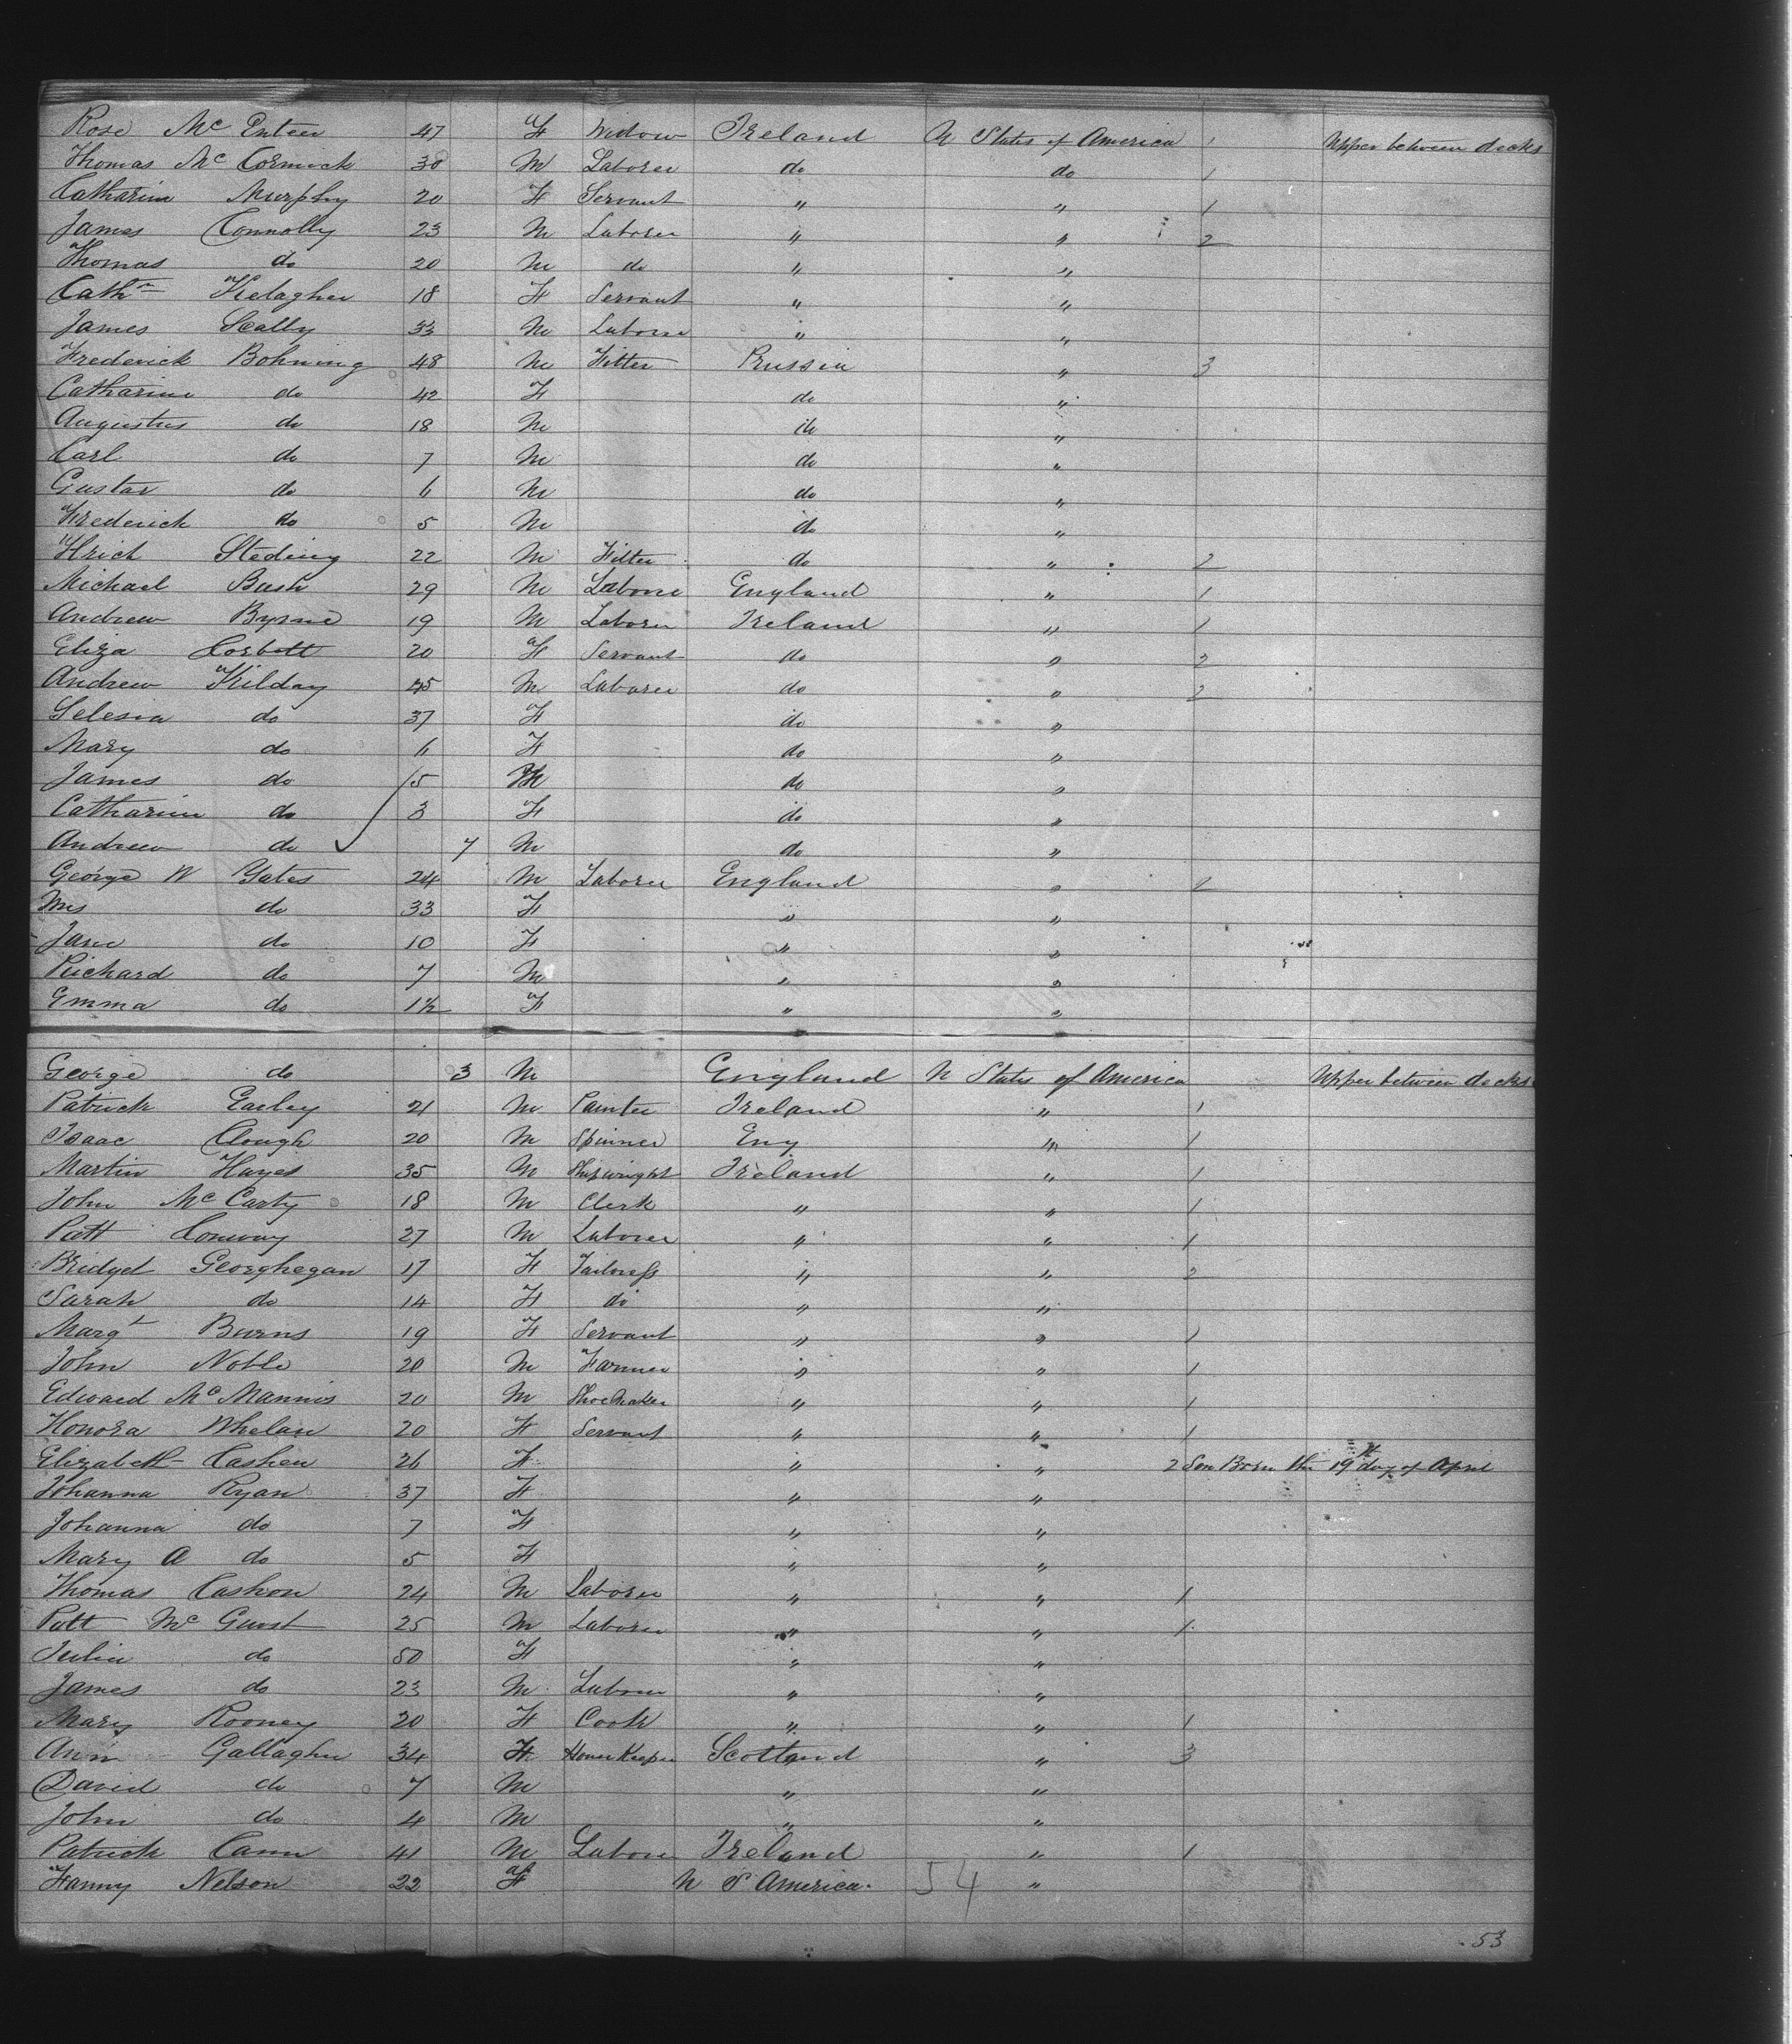 Rose Mc Enteer 47 F Widow Ireland U States of America 1 Upper between decks
Thomas Mc Cormick 30 M Laborer do do 1
Catharine Murphy 20 F Servant " " 1
James Connolly 23 M Laborer " " 2
Thomas do 20 M do " "
Cathn Kelagher 18 F Servant " "
James Scally 33 M Laborer " "
Frederick Bohning 48 M Fitter Prussia " 3
Catharine do 42 F do "
Augustus do 18 M do "
Carl do 7 M do "
Gustav do 6 M do "
Frederick do 5 M do "
Ulrich Steding 22 M Fitter do " 2
Michael Bush 29 M Laborer England " 1
Andrew Byrne 19 M Laborer Ireland " 1
Eliza Corbett 20 F Servant do " 2
Andrew Kilday 45 M Laborer do " 2
Selesia do 37 F do "
Mary do 6 F do "
James do 5 M do "
Catharine do 3 F do "
Andrew do 7 M do "
George W Yates 24 M Laborer England " 2
Mrs do 33 F " "
Jane do 10 F " "
Richard do 7 M " "
Emma do 1½ F " "
George do 3 M England U States of America Upper between decks
Patrick Earley 21 M Painter Ireland " 1
Isaac Clough 20 M Spinner Eng " 1
Martin Hayes 35 M Shipwright Ireland " 1
John Mc Carty 18 M Clerk " " 1
Patt Conway 27 M Laborer " " 1
Bridget Georghegan 17 F Tailoress " " 2
Sarah do 14 F do " "
Margt Burns 19 F Servant " " 1
John Noble 20 M Farmer " " 1
Edward Mc Mannis 20 M Shoemaker " " 1
Honora Whelan 20 F Servant " " 1
Elizabeth Cashen 26 F " " 2 Son Born the 19th day of April
Johanna Ryan 37 F " "
Johanna do 7 F " "
Mary A do 5 F " "
Thomas Cashon 24 M Laborer " " 1
Patt Mc 25 M Laborer " " 1
Julia do 50 F " "
James do 23 M Laborer " "
Mary Rooney 20 F Cook " " 1
Ann Gallagher 34 F House Keeper Scotland " 3
David do 7 M " "
John do 4 M " "
Patrick Cann 41 M Laborer Ireland " 1
Fanny Nelson 22 F U S America 54 "
53